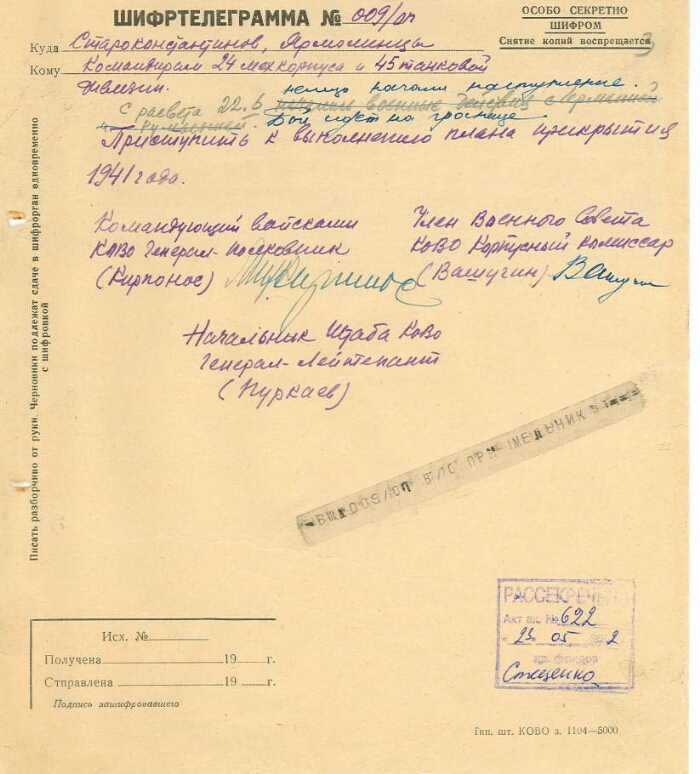 ШИФРТЕЛЕГРАММА № 009/оп
ОСОБО СЕКРЕТНО
ШИФРОМ
Снятие копий воспрещается
3
Куда Староконстантинов, Ярмолинцы
Кому Командирам 24 мехкорпуса и 45 танковой
дивизии.
немцы начали наступление.
С расвета 22.6 начали военные действия с Германией
и Румынией. Бой идет на границе
Приступить к выполнению плана прикрытия
1941 года.
Командующий войсками
КОВО Генерал-полковник
(Кирпонос)
Член Военного Совета
КОВО Корпусный комиссар
(Вашугин)
Начальник Штаба КОВО
Генерал-Лейтенант
(Пуркаев)
Писать разборчиво от руки. Черновики подлежат сдаче в шифрорган одновременно
с шифровкой
РАССЕКРЕЧЕНО
Акт вх. № 622
23. 05
Стеценко
Исх. №
Получена 19 г.
Отправлена 19 г.
Подпись зашифровавшего
Тип. шт. КОВО з. 1104—5000